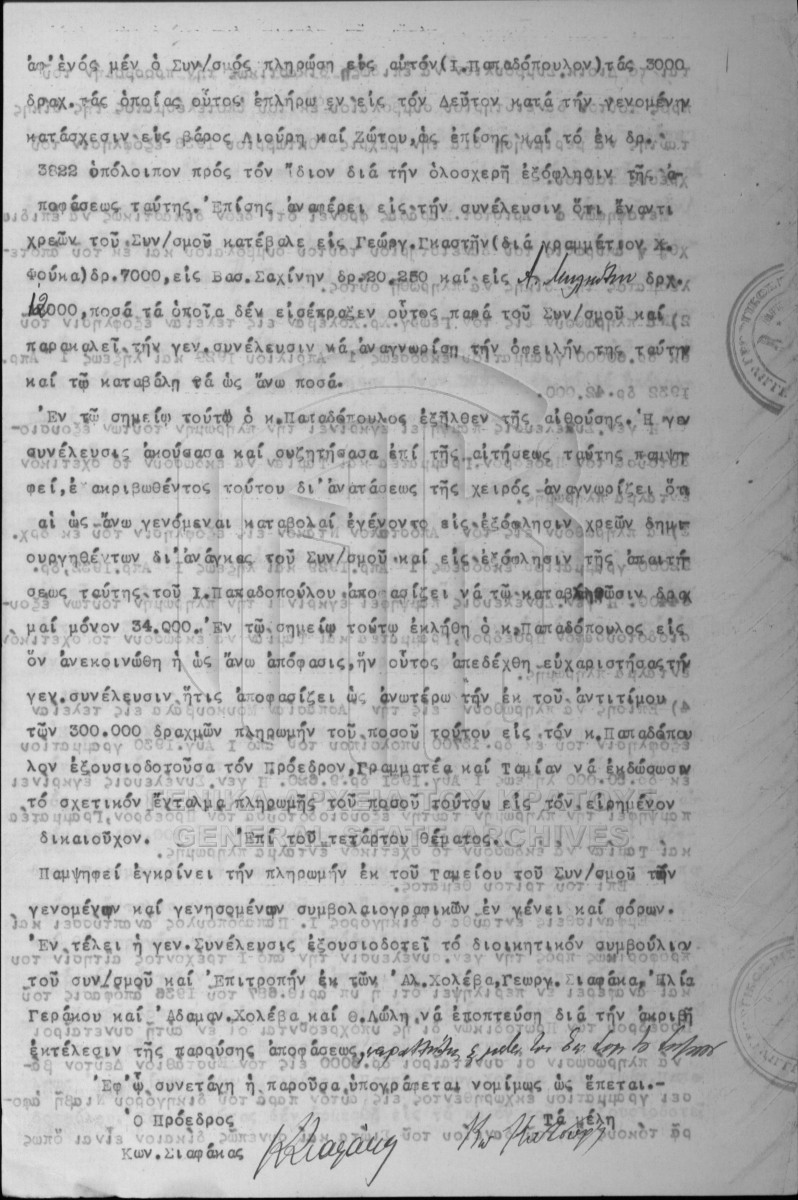 ἀφ'ἑνός μέν ὁ Συν/σμός πληρώση εἰς αὐτόν(Ι.Παπαδόπουλον)τάς 3000
δραχ.τάς ὁποίας οὗτος ἐπλήρω εν εἰς τόν Δεῦτον κατά τήν γενομένην
κατάσχεσιν εἰς βάρος Λιούρη καί Ζώτου,ὡς ἐπίσης καί τό ἐκ δρ.
3822 ὑπόλοιπον πρός τόν ἴδιον διά τήν ὁλοσχερῆ ἐξόφλησιν τῆς ἀ-
ποφάσεως ταύτης.Ἐπίσης ἀναφέρει εἰς τήν συνέλευσιν ὅτι ἔναντι
χρεῶν τοῦ Συν/σμοῦ κατέβαλε εἰς Γεώργ.Γκαστῆν(διά γραμμέτιον Χ.
Φούκα)δρ.7000,εἰς Βασ.Σαχίνην δρ.20.250 καί εἰς δρχ.
12000,ποσά τά ὁποῖα δέν εἰσέπραξεν οὗτος παρά τοῦ Συν/σμοῦ καί
παρακαλεῖ τήν γεν.συνέλευσιν νά ἀναγνωρίση τήν ὀφειλήν της ταύτην
καί τῷ καταβάλη τά ὡς ἄνω ποσά.
Ἐν τῷ σημείῳ τούτῳ ὁ κ.Παπαδόπουλος ἐξῆλθεν τῆς αἰθούσης.Ἡ γεν
συνέλευσις ἀκούσασα καί συζητήσασα ἐπί τῆς αἰτήσεως ταύτης παμψη
φεί,ἐ ακριβωθέντος τούτου δι'ἀνατάσεως τῆς χειρός ἀναγνωρίζει ὅτι
αἱ ὡς ἄνω γενόμεναι καταβολαί ἐγένοντο εἰς ἐξόφλησιν χρεῶν δημι
ουργηθέντων δι'ἀνάγκας τοῦ Συν/σμοῦ καί εἰς ἐξόφλησιν τῆς ἀπαιτή
σεως ταύτης τοῦ Ι.Παπαδοπούλου ἀποφασίζει νά τῷ καταβληθῶσιν δραχ
μαί μόνον 34.000.Ἐν τῷ σημείῳ τούτῳ ἐκλήθη ὁ κ.Παπαδόπουλος εἰς
ὅν ἀνεκοινώθη ἡ ὡς ἄνω ἀπόφασις,ἥν οὗτος ἀπεδέχθη εὐχαριστήσας τήν
γεν.συνέλευσιν ἥτις ἀποφασίζει ὡς ἀνωτέρω τήν ἐκ τοῦ ἀντιτίμου
τῶν 300.000 δραχμῶν πληρωμήν τοῦ ποσοῦ τούτου εἰς τόν κ.Παπαδόπου
λον ἐξουσιοδοτοῦσα τόν Πρόεδρον,Γραμματέα καί Ταμίαν νά ἐκδώσωσιν
τό σχετικόν ἔνταλμα πληρωμῆς τοῦ ποσοῦ τούτου εἰς τόν εἰρημένον
δικαιοῦχον. Ἐπί τοῦ τετάρτου θέματος.
Παμψηφεί ἐγκρίνει τήν πληρωμήν ἐκ τοῦ Ταμείου τοῦ Συν/σμοῦ τῶν
γενομένων καί γενησομένων συμβολαιογραφικῶν ἐν γένει καί φόρων.
Ἐν τέλει ἡ γεν.Συνέλευσις ἐξουσιοδοτεῖ τό διοικητικόν συμβούλιον
τοῦ συν/σμοῦ καί Ἐπιτροπήν ἐκ τῶν Ἀλ.Χολέβα,Γεωργ.Σιαφάκα,Ἠλία
Γεράκου καί Ἀδαμαν.Χολέβα καί Θ.Λώλη,νά ἐποπτεύση διά τήν ἀκριβῆ
ἐκτέλεσιν τῆς παρούσης ἀποφάσεως,
Ἐφ'ᾧ συνετάγη ἡ παροῦσα,ὑπογράφεται νομίμως ὡς ἕπεται.-
Ὁ Πρόεδρος Τά μέλη
Κων.Σιαφάκας
ΓΕΝΙΚΑ ΑΡΧΕΙΑ ΤΟΥ ΚΡΑΤΟΥΣ
GENERAL STATE ARCHIVES